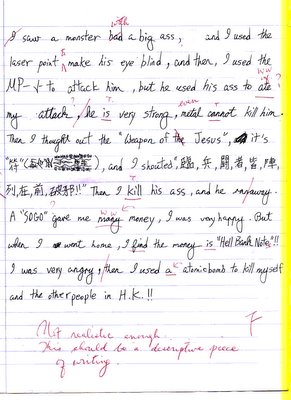 with
I saw a monster had a big ass, and I used the
laser point make his eye blind, and then, I used the
MP-5 to attack him, but he used his ass to ate
my attack, he is very strong, metal cannot kill him.
Then I thought out the "Weapon of the Jesus", it's
, and I shouted "臨,兵,鬥,者,皆,陣,
列,在,前,破邪!!" Then I kill his ass, and he runaway.
A "SOGO" gave me many money, I was very happy. But
when I went home, I find the money is "Hell Bank Note"!!
I was very angry, then I used a atomic bomb to kill myself
and the other people in H.K.!!
Not realistic enough. F
This should be a descriptive piece
of writing.